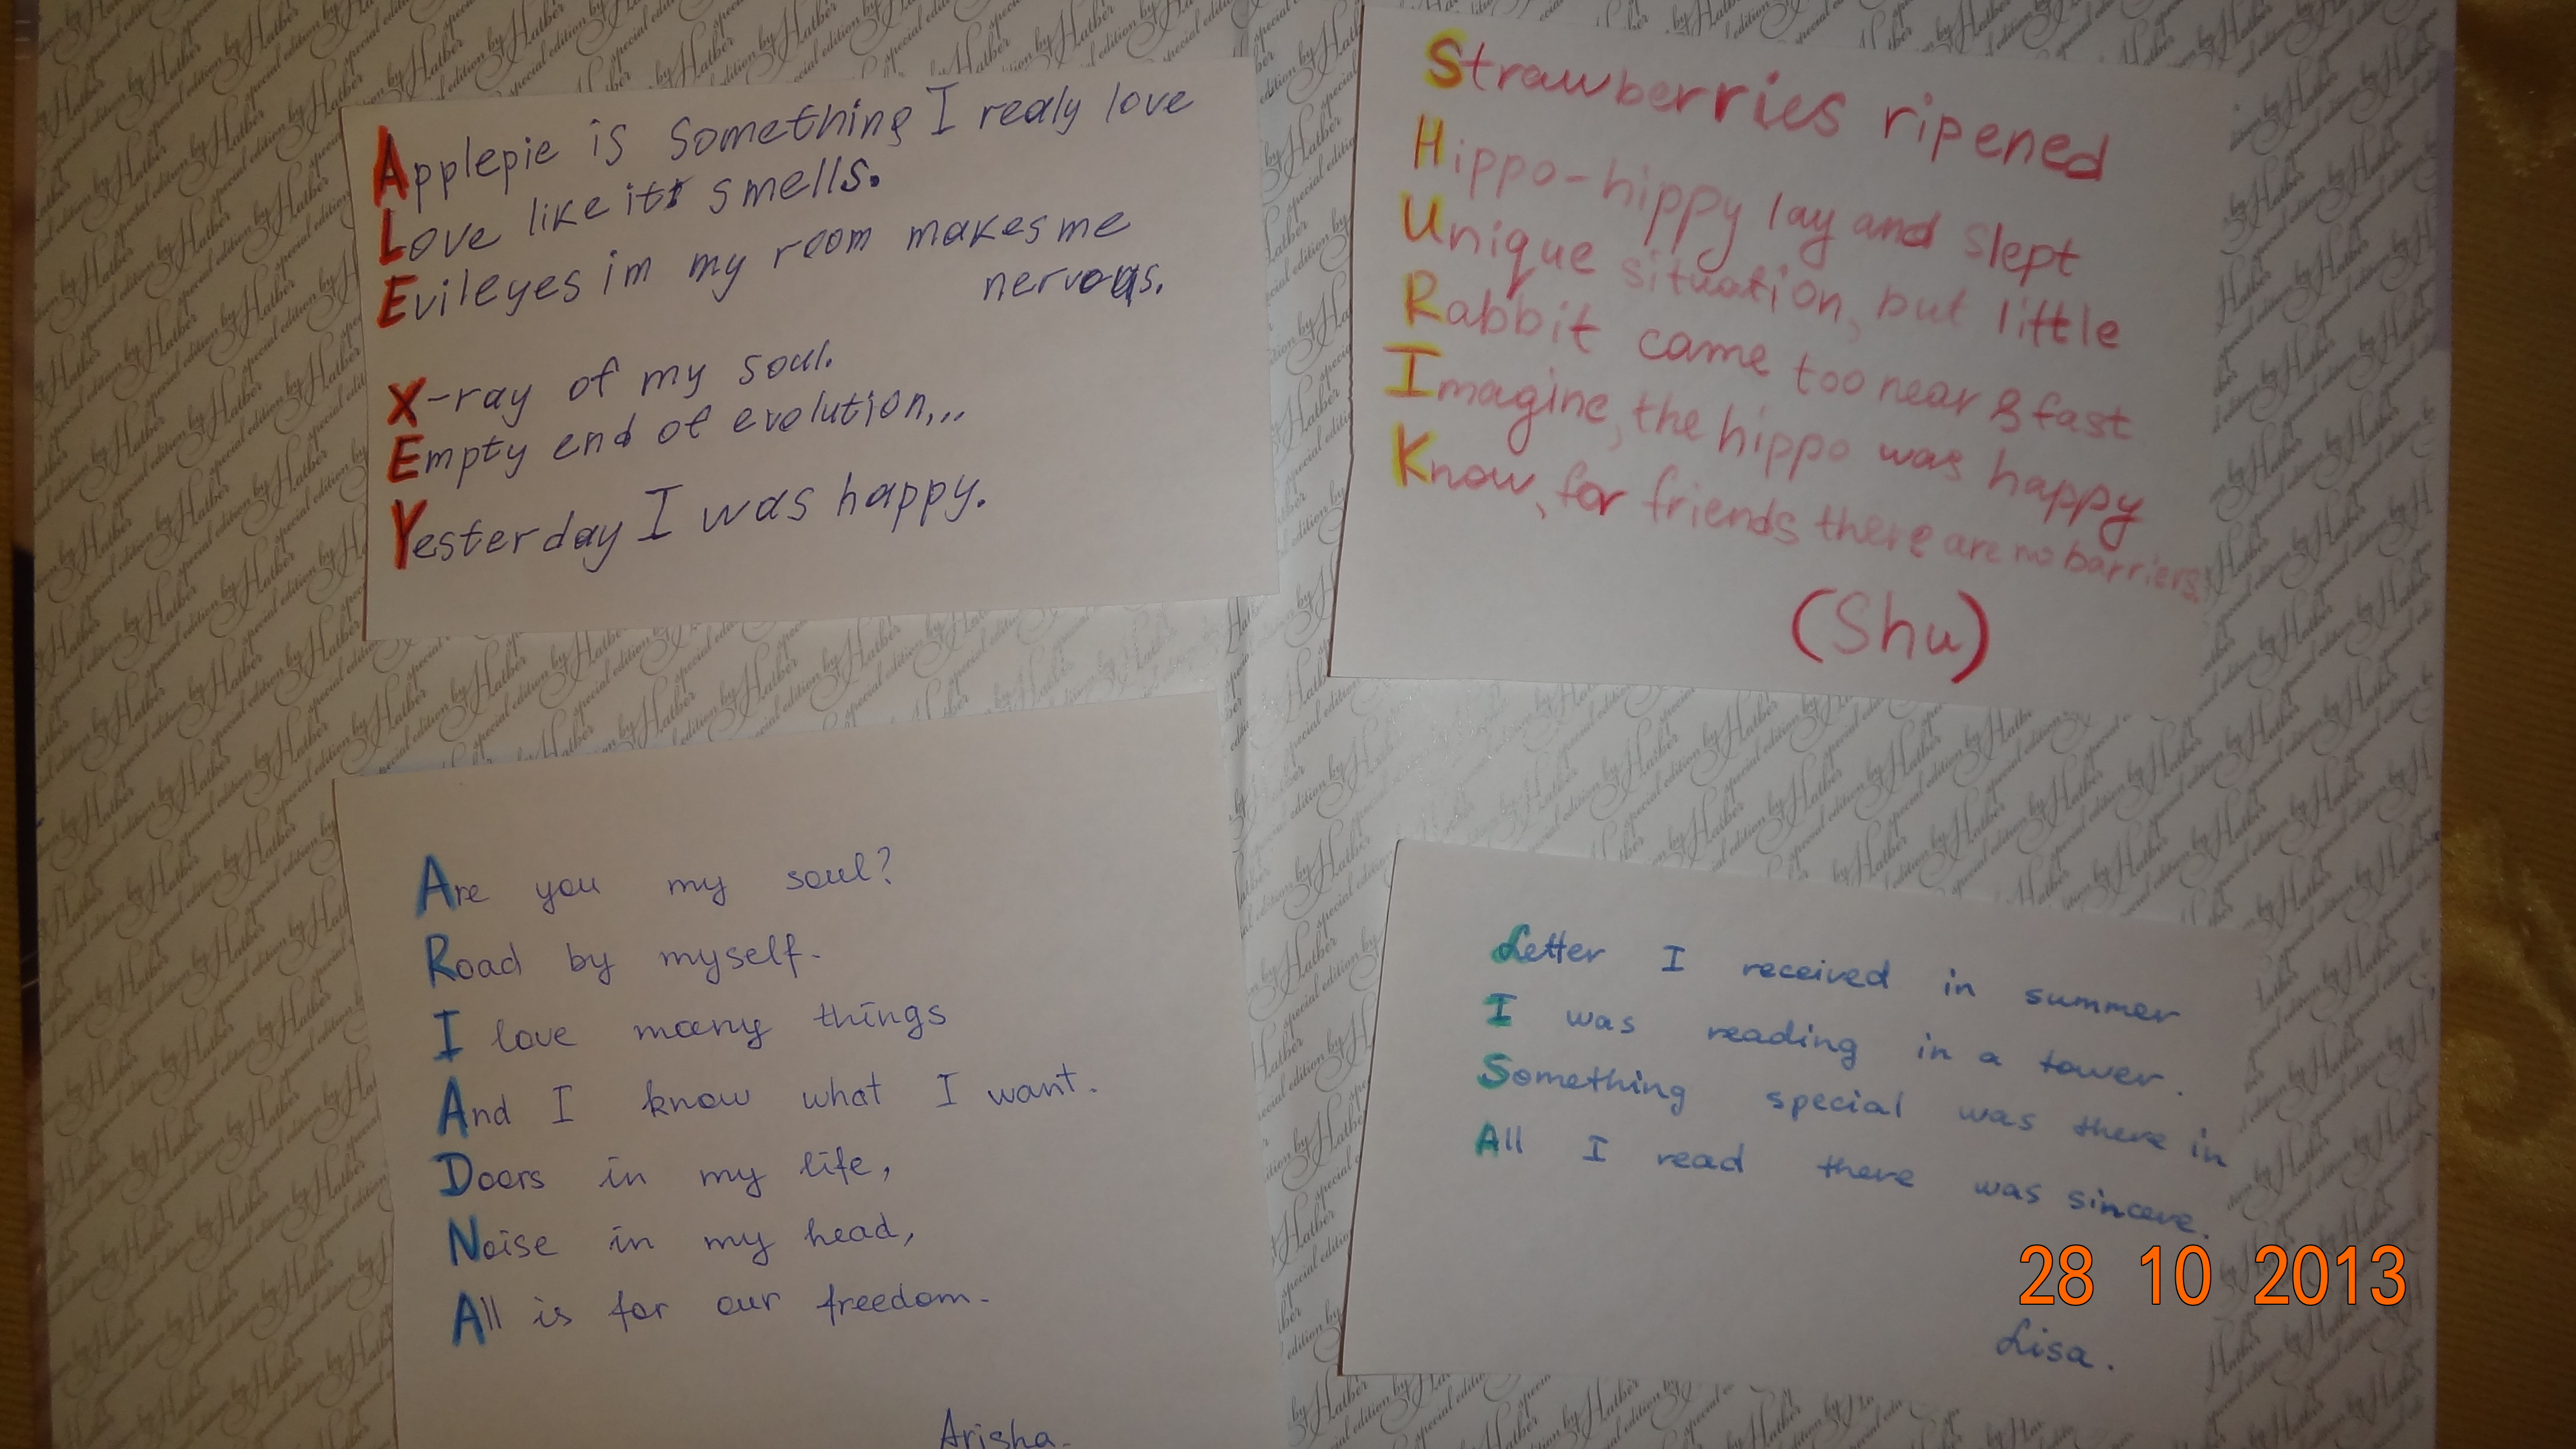 Applepie is something I realy love
Love like it smells.
Evileyes im my room makes me
nervous.
X-ray of my soul.
Empty end of evolution...
Yesterday I was happy.
Strawberries ripened
Hippo-hippy lay and slept
Unique situation, but little
Rabbit came too near & fast
Imagine, the hippo was happy
Know, for friends there are no barriers.
(Shu)
Are you my soul?
Road by myself.
I love many things
And I know what I want.
Doors in my life,
Noise in my head,
All is for our freedom.
Arisha.
Letter I received in summer
I was reading in a tower.
Something special was there in
All I read there was sincere.
28 10 2013
Lisa.
special edition by Hatber